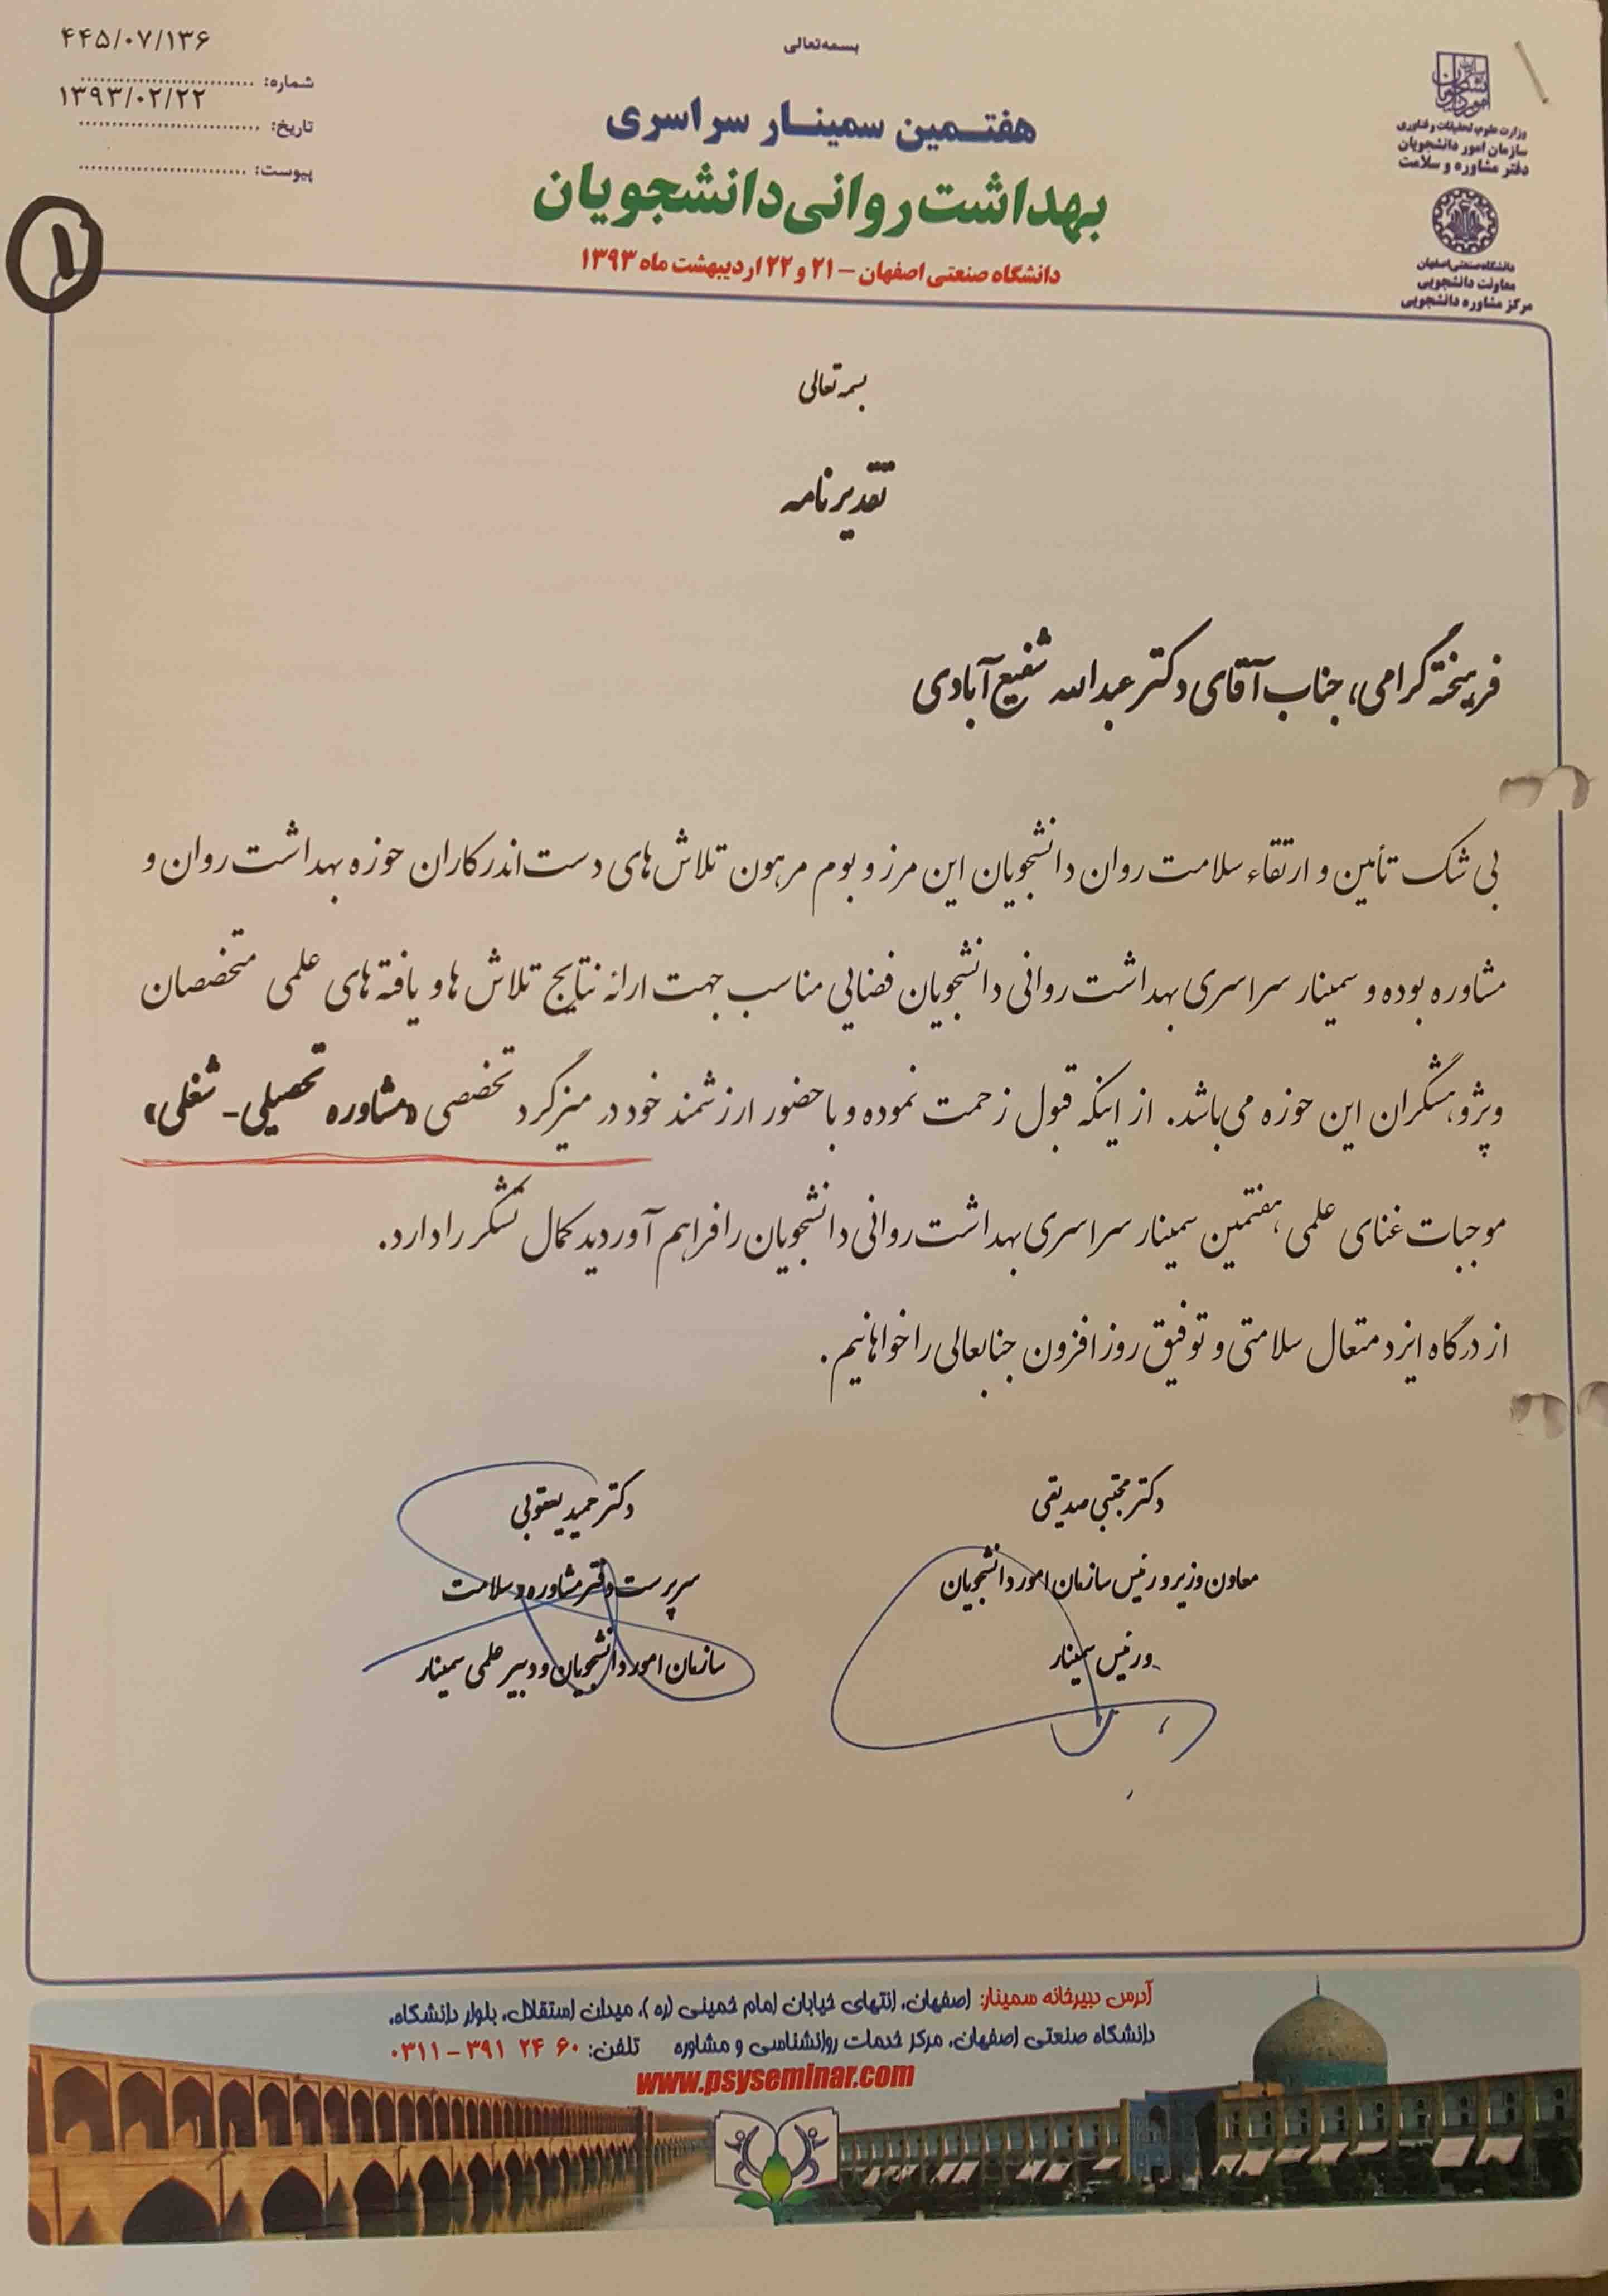 بسمه‌تعالی
۴۴۵/۰۷/۱۳۶
شماره:
۱۳۹۳/۰۲/۲۲
تاریخ:
پیوست:
۱
هفتمین سمینار سراسری
بهداشت روانی دانشجویان
دانشگاه صنعتی اصفهان – ۲۱ و ۲۲ اردیبهشت ماه ۱۳۹۳
سازمان امور دانشجویان
وزارت علوم، تحقیقات و فناوری
سازمان امور دانشجویان
دفتر مشاوره و سلامت
دانشگاه صنعتی اصفهان
معاونت دانشجویی
مرکز مشاوره دانشجویی
بسمه تعالی
تقدیرنامه
فرهیخته گرامی، جناب آقای دکتر عبدالله شفیع آبادی
بی شک تأمین و ارتقاء سلامت روان دانشجویان این مرز و بوم مرهون تلاش‌های دست‌اندرکاران حوزه بهداشت روان و
مشاوره بوده و سمینار سراسری بهداشت روانی دانشجویان فضایی مناسب جهت ارائه نتایج تلاش ها و یافته های علمی متخصصان
و پژوهشگران این حوزه می‌باشد. از اینکه قبول زحمت نموده و با حضور ارزشمند خود در میزگرد تخصصی «مشاوره تحصیلی- شغلی»
موجبات غنای علمی هفتمین سمینار سراسری بهداشت روانی دانشجویان را فراهم آوردید کمال تشکر را دارد.
از درگاه ایزد متعال سلامتی و توفیق روز افزون جنابعالی را خواهانیم.
دکتر مجتبی صدیقی
معاون وزیر و رئیس سازمان امور دانشجویان
و رئیس سمینار
دکتر حمید یعقوبی
سرپرست دفتر مشاوره و سلامت
سازمان امور دانشجویان و دبیر علمی سمینار
آدرس دبیرخانه سمینار: اصفهان، انتهای خیابان امام خمینی (ره)، میدان استقلال، بلوار دانشگاه،
دانشگاه صنعتی اصفهان، مرکز خدمات روانشناسی و مشاوره تلفن: ۶۰ ۲۴ ۳۹۱ – ۰۳۱۱
www.psyseminar.com